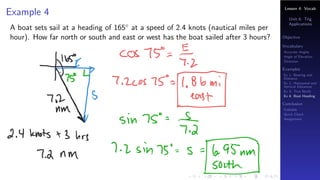 Example 4
A boat sets sail at a heading of 165° at a speed of 2.4 knots (nautical miles per
hour). How far north or south and east or west has the boat sailed after 3 hours?
165°
75°
E
S
7.2
nm
2.4 knots + 3 hrs
7.2 nm
cos 75° = E/7.2
7.2 cos 75° = 1.86 mi.
east
sin 75° = S/7.2
7.2 sin 75° = S = 6.95 nm
south
Lesson 6: Vocab
Unit 6: Trig
Applications
Objective
Vocabulary
Accurate Angles
Angle of Elevation
Direction
Examples
Ex 1: Bearing and
Distance
Ex 2: Horizontal and
Vertical Distances
Ex 3: True North
Ex 4: Boat Heading
Conclusion
Foldable
Quick Check
Assignment